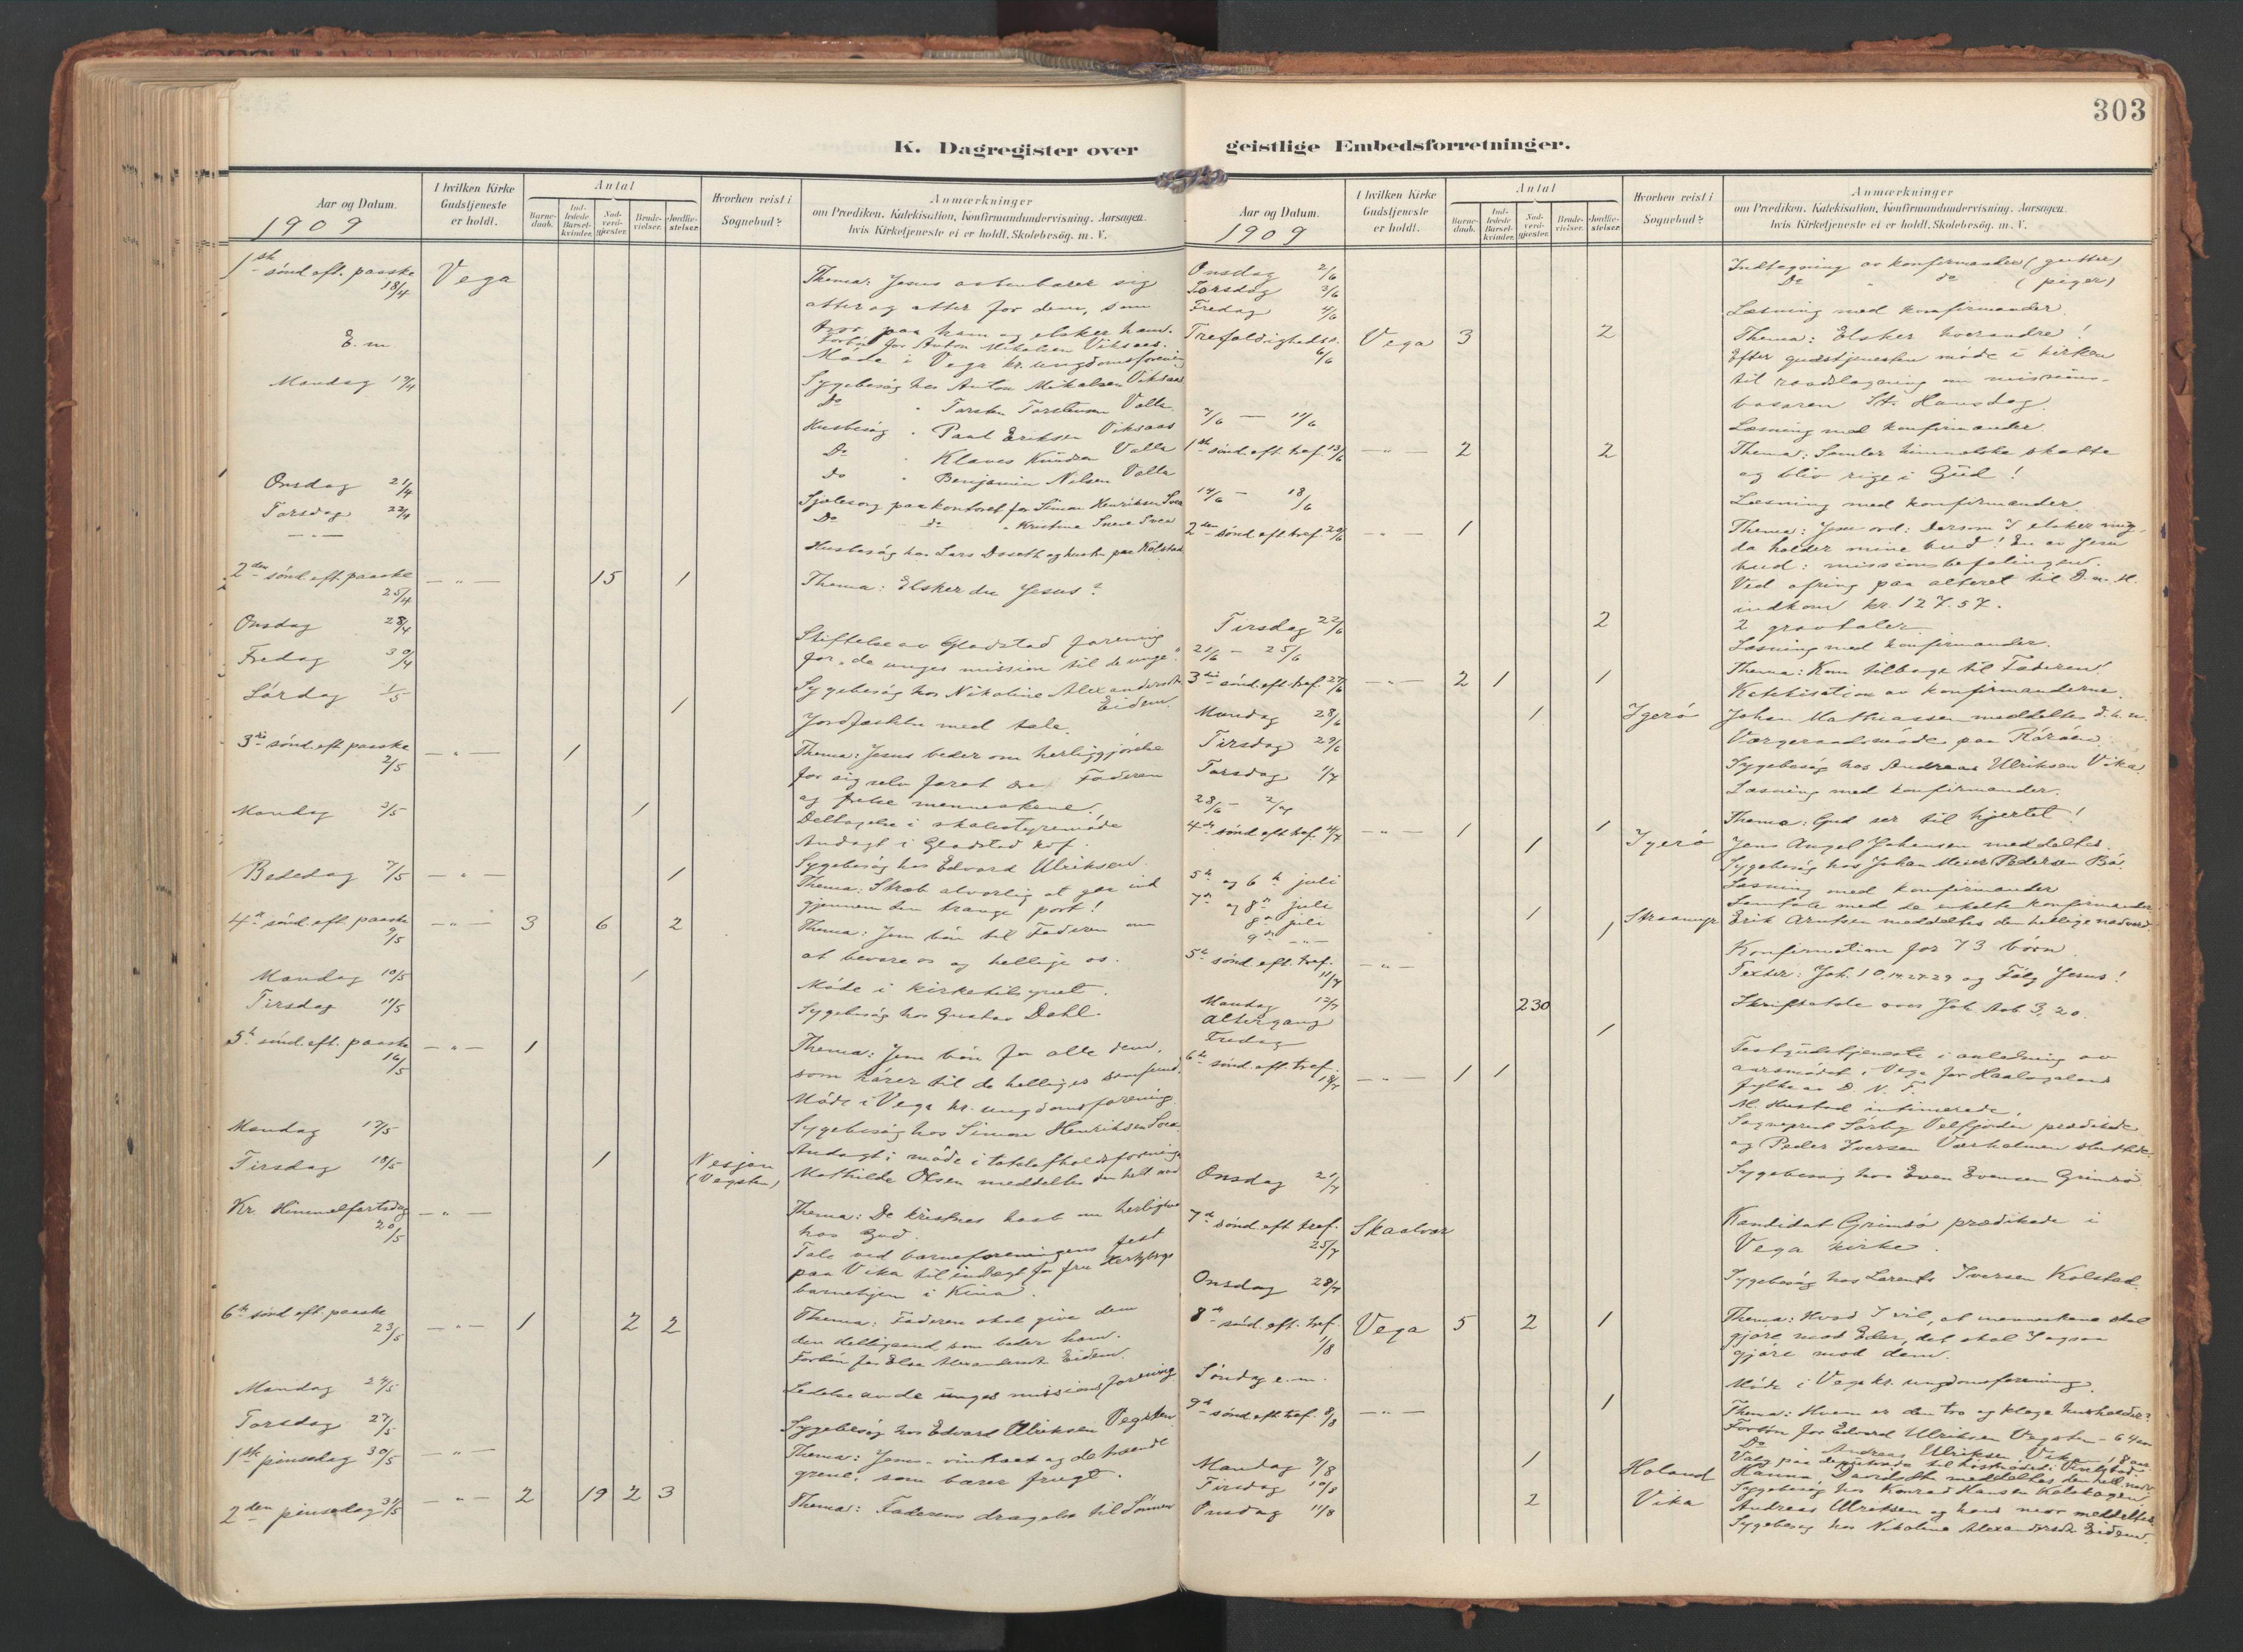 303
K. Dagregister over
Aar og Datum.
I hvilken Kirke
Gudstjeneste
er holdt.
Antal
Barne-
daab.
Ind-
ledede
Barsel-
kvinder.
Nad-
verd-
gjester.
Brude-
vielser.
Jordfæ-
stelser.
Hvorhen reist i
Sognebud?
Anmærkninger
om Prædiken. Katekisation, Konfirmandundervisning. Aarsagen.
hvis Kirketjeneste ei er holdt. Skolebesøg. m. V.
1909
1ste sønd. eft. paaske 18/4 Vega
Thema: Jesus aabenbarer sig
atter og atter for dem, som
tror paa ham og elsker ham.
Forbøn for Anton Mikalsen Viksaas.
E. m Møde i Vega kr. ungdomsforening
Mandag 19/4 Sygebesøg hos Anton Mikalsen Viksaas
Do " Torsten Torstensen Valla
Husbesøg " Paul Eriksen Viksaas
Do " Klaves Knudsen Valla
do " Benjamin Nilsen Valla
Onsdag 21/4 Sjælesorg paa kontoret for Simon Henriksen Svea
Torsdag 22/4 Do do " Kristine Svea
— " — Husbesøg hos Lars Doseth og hustru paa Kolstad
2den sønd. eft. paaske 25/4 — " — 15 1 Thema: Elsker du Jesus?
Onsdag 28/4 Stiftelse av Gladstad forening
for "de unges mission til de unge".
Fredag 30/4 Sygebesøg hos Nikoline Alexandersdtr Eidem.
Lørdag 1/5 1 Jordfæstelse med tale.
3die sønd. eft. paaske 2/5 — " — 1 Thema: Jesus beder om herliggjørelse
for sig selv for at ære Faderen
og frelse menneskene.
Mandag 3/5 1 Deltagelse i skolestyremøde
Andagt i Gladstad
Sygebesøg hos Edvard Ulriksen
Bededag 7/5 — " — 1 Thema: Stræb alvorlig at gaa ind
gjennem den trange port!
4de sønd. eft. paaske 9/5 — " — 3 6 2 Thema: Jesu bøn til Faderen om
at bevare os og hellige os.
Mandag 10/5 1 Møde i kirketilsynet.
Tirsdag 11/5 Sygebesøg hos Gustav Dahl.
5te sønd. eft. paaske 16/5 — " — 1 Thema: Jesu bøn for alle dem,
som hører til de helliges samfund.
Møde i Vega kr. ungdomsforening
Mandag 17/5 Sygebesøg hos Simon Henriksen Svea.
Andagt i møde i totalafholdsforeningen
Tirsdag 18/5 1 Nesjan (Vegsten) Mathilde Olsen meddeltes den hell. nad
Kr. Himmelfartsdag 20/5 — " — Thema: De kristnes haab om herlighed
hos Gud.
Tale ved barneforeningens fest
paa Vika til indtægt for fru Hertzbergs
barnehjem i Kina.
6te sønd. eft. paaske 23/5 — " — 1 2 2 Thema: Faderen skal give dem
den Helligaand, som beder ham.
Forbøn for Elsa Alexandersdtr Eidem.
Mandag 24/5 Ledelse av de unges missionsforening
Torsdag 27/5 Sygebesøg hos Edvard Ulriksen Vegsten
1ste pinsedag 30/5 — " — Thema: Jesus – vintræet og de troende
grene, som bærer frugt.
2den pinsedag 31/5 — " — 2 19 2 3 Thema: Faderens dragelse til Sønnen
geistlige Embedsforretninger.
Aar og Datum.
I hvilken Kirke
Gudstjeneste
er holdt.
Antal
Barne-
daab.
Ind-
ledede
Barsel-
kvinder.
Nad-
verd-
gjester.
Brude-
vielser.
Jordfæ-
stelser.
Hvorhen reist i
Sognebud?
Anmærkninger
om Prædiken. Katekisation, Konfirmandundervisning. Aarsagen.
hvis Kirketjeneste ei er holdt. Skolebesøg. m. V.
1909
Onsdag 2/6 Indtagning av konfirmander (gutter)
Torsdag 3/6 Do " do (piger)
Fredag 4/6 Læsning med konfirmander.
Trefoldighedss. 6/6 Vega 3 2 Thema: Elsker hverandre!
Efter gudstjenesten møde i kirken
til raadslagning om missions-
basaren St. Hansdag.
7/6 — 11/6 Læsning med konfirmander.
1ste sønd. eft. tref. 13/6 — " — 2 2 Thema: Samler himmelske skatte
og bliv rige i Gud!
14/6 — 18/6 Læsning med konfirmander.
2den sønd. eft. tref. 20/6 — " — 1 Thema: Jesu ord: Dersom I elsker mig,
da holder mine bud! En av Jesu
bud: missionsbefalingen.
Ved ofring paa alteret til D. n. M.
indkom kr. 127.57.
Tirsdag 22/6 2 2 gravtaler
21/6 — 25/6 Læsning med konfirmander.
3die sønd. eft. tref. 27/6 — " — 2 1 1 Thema: Kom tilbage til Faderen!
Katekisation av konfirmanderne.
Mandag 28/6 1 Igerø Johan Mathiassen meddeltes d. h. n.
Tirsdag 29/6 Værgeraadsmøde paa Rørøen
Torsdag 1/7 Sygebesøg hos Andreas Ulriksen Vika.
28/6 — 2/7 Læsning med konfirmander.
4de sønd. eft. tref. 4/7 — " — 1 1 Thema: Gud ser til hjertet!
1 Igerø Jens Angel Johansen meddeltes.
Sygebesøg hos Johan Meier Pedersen Bø.
5te og 6te juli Læsning med konfirmander
7de og 8de juli Samtale med de enkelte konfirmander.
8de juli 1 Erik Arntsen meddeltes den hellige nadverd.
9de — " — 1
5te sønd. eft. tref. 11/7 — " — Konfirmation for 73 børn.
Texter: Joh. 10, 14.27-29 og Følg Jesus!
Mandag 12/7 Altergang 230 Skriftetale over Joh. Aab 3, 20.
Fredag 1
6te sønd. eft. tref. 18/7 — " — 1 1 Festgudstjeneste i anledning av
aarsmødet i Vega for Haalogaland
fylke av D. N. T.
M. Hustad intimerede.
Sogneprest Sørby Velfjorden prædikede
og Peder Iversen Værholmen sluttede.
Onsdag 21/7 Sygebesøg hos Even Evensen Grimsø
7de sønd. eft. tref. 25/7 Skaalvær Kandidat Grimsø prædikede i
Vega kirke.
Onsdag 28/7 Sygebesøg hos Lorents Iversen Kolstad.
8de sønd. eft. tref. 1/8 Vega 5 2 1 Thema: Hvad I vil, at menneskene skal
gjøre mod Eder, det skal I ogsaa
gjøre mod dem.
Søndag e. m. Møde i Vega kr. ungdomsforening.
9de sønd. eft. tref. 8/8 — " — 1 Thema: Hvem er den tro og kloge husholder?
Forbøn for Edvard Ulriksen Vegsten – 64 aar
Do Andreas Ulriksen Vika
Mandag 9/8 1 Holand Hanna Davidsdtr meddeltes den hell. nadv.
Tirsdag 10/8 Sygebesøg hos Konrad Hansen Kolskogen
Onsdag 11/8 2 Vika Andreas Ulriksen og hans mor meddeltes.
Sygebesøg hos Nikoline Alexandersdtr Eidem.